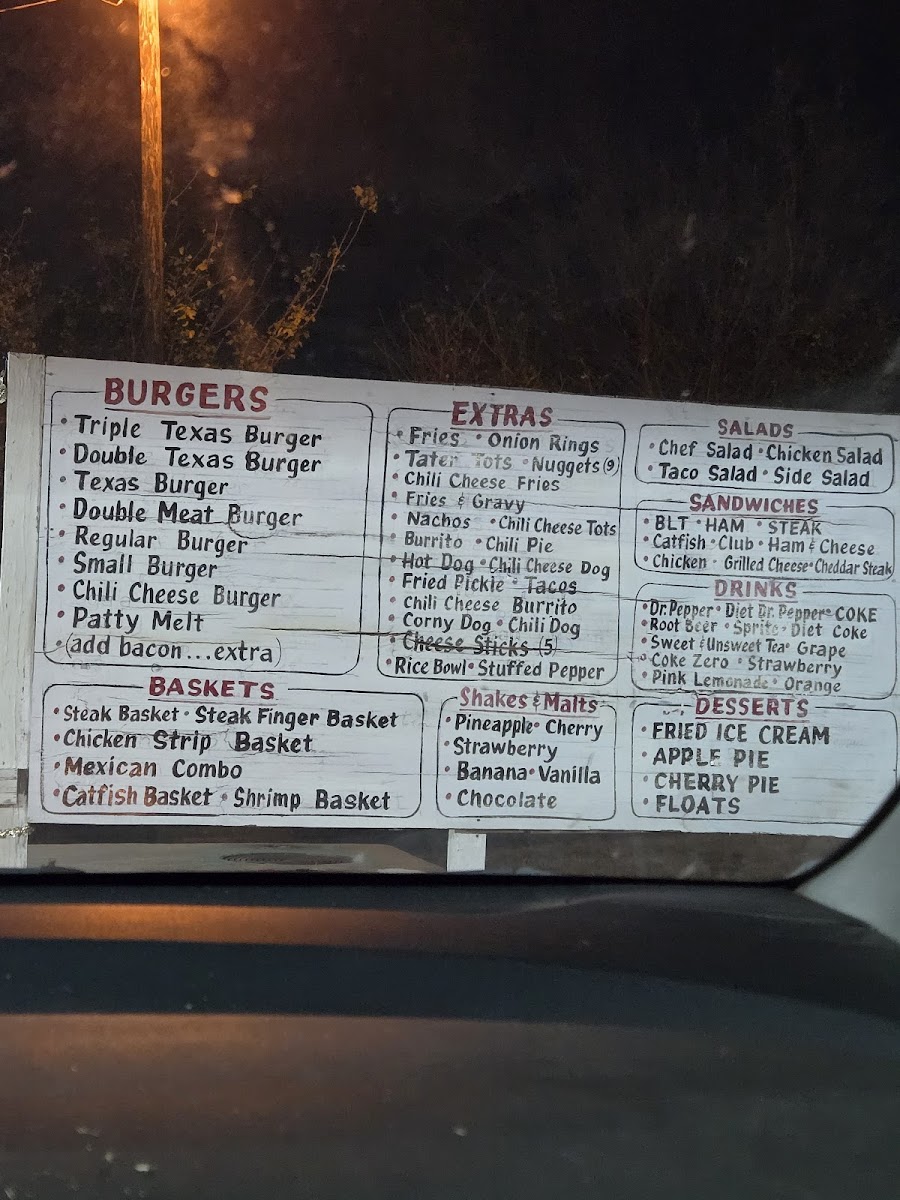 BURGERS
• Triple Texas Burger
• Double Texas Burger
• Texas Burger
• Double Meat Burger
• Regular Burger
• Small Burger
• Chili Cheese Burger
• Patty Melt
• (add bacon...extra)
EXTRAS
• Fries • Onion Rings
• Tater Tots • Nuggets (9)
• Chili Cheese Fries
• Fries & Gravy
• Nachos • Chili Cheese Tots
• Burrito • Chili Pie
• Hot Dog • Chili Cheese Dog
• Fried Pickle • Tacos
• Chili Cheese Burrito
• Corny Dog • Chili Dog
• Cheese Sticks (5)
• Rice Bowl • Stuffed Pepper
SALADS
• Chef Salad • Chicken Salad
• Taco Salad • Side Salad
SANDWICHES
• BLT • HAM • STEAK
• Catfish • Club • Ham & Cheese
• Chicken • Grilled Cheese • Cheddar Steak
DRINKS
• Dr. Pepper • Diet Dr. Pepper • COKE
• Root Beer • Sprite • Diet Coke
• Sweet & Unsweet Tea • Grape
• Coke Zero • Strawberry
• Pink Lemonade • Orange
BASKETS
• Steak Basket • Steak Finger Basket
• Chicken Strip Basket
• Mexican Combo
• Catfish Basket • Shrimp Basket
Shakes & Malts
• Pineapple • Cherry
• Strawberry
• Banana • Vanilla
• Chocolate
DESSERTS
• FRIED ICE CREAM
• APPLE PIE
• CHERRY PIE
• FLOATS